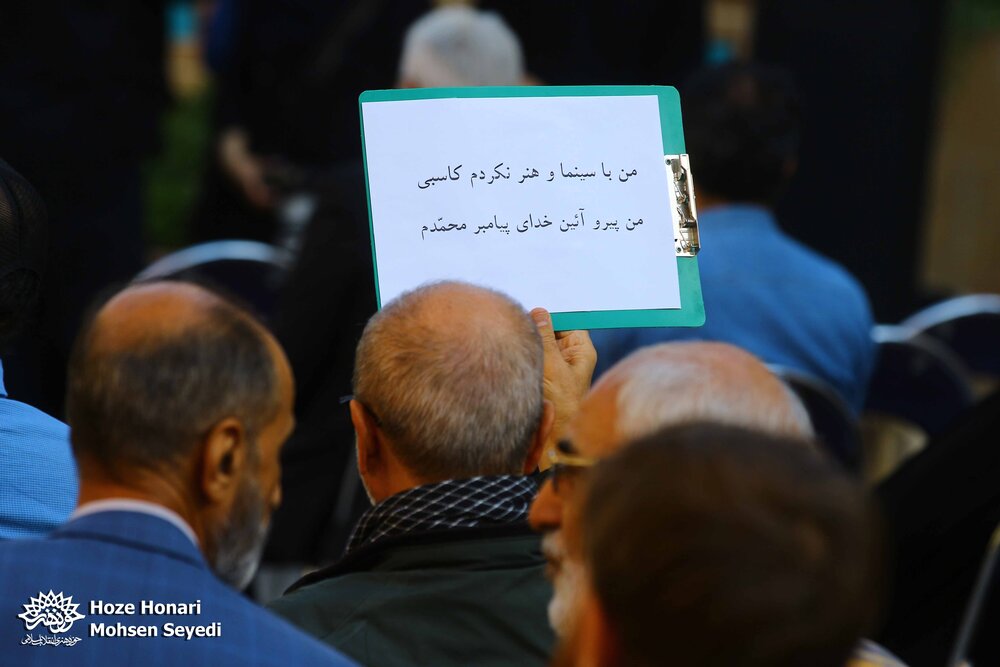 من با سینما و هنر نکردم کاسبی
من پیرو آئین خدای پیامبر محمّدم
Hoze Honari
Mohsen Seyedi
حوزه هنری انقلاب اسلامی